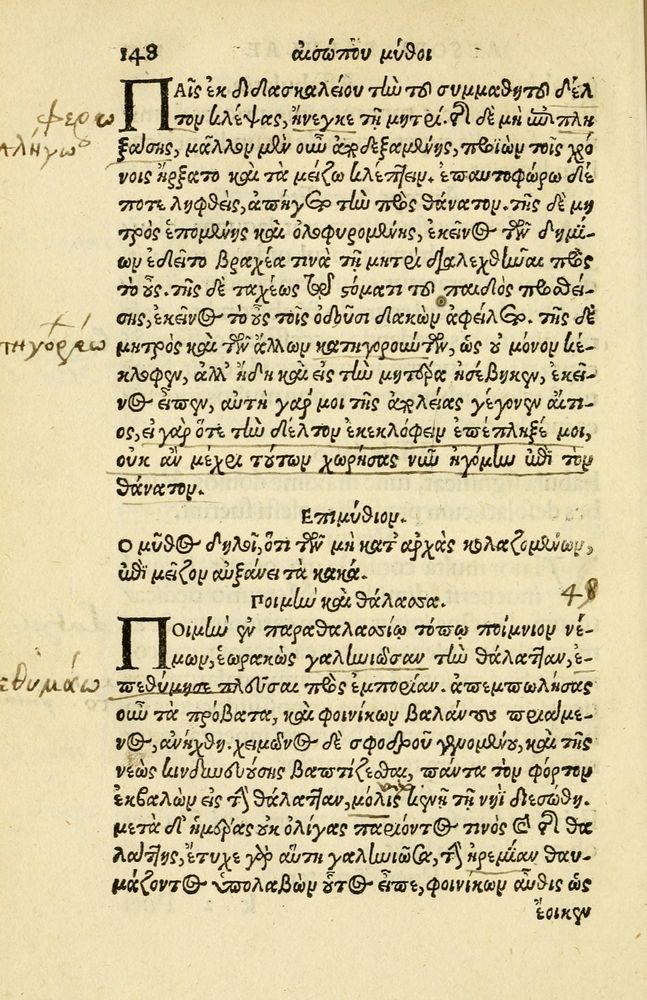 148 αἰσώπου μῦθοι
ΠΑῖς ἐκ διδασκαλείου τὴν τοῦ συμμαθητοῦ δέλ
τον κλέψας, ἤνεγκε τῇ μητρί. τῆς δὲ μὴ ἐπιπλη
φέρω
πλήγω
ξάσης, μᾶλλον μὲν οὖν ἀποδεξαμένης, προϊὼν τοῖς χρό
νοις ἤρξατο καὶ τὰ μείζω κλέπτειν. ἐπαυτοφώρω δέ
ποτε ληφθεὶς, ἀπήγετο τὴν πρὸς θάνατον. τῆς δὲ μη
τρὸς ἑπομένης καὶ ὀλοφυρομένης, ἐκεῖνος τῶν δημί-
ων ἐδεῖτο βραχέα τινὰ τῇ μητρὶ διαλεχθῆναι πρὸς
τὸ οὖς. τῆς δὲ ταχέως τῷ στόματι τοῦ παιδὸς προσθεί-
σης, ἐκεῖνος τὸ οὖς τοῖς ὀδοῦσι δακὼν ἀφείλετο. τῆς δὲ
μητρὸς καὶ τῶν ἄλλων κατηγορούντων, ὡς οὐ μόνον κέ-
κλοφεν, ἀλλ' ἤδη καὶ εἰς τὴν μητέρα ἠσέβηκεν, ἐκεῖ-
νος εἶπεν, αὐτὴ γάρ μοι τῆς ἀπωλείας γέγονεν αἴτι-
ος, εἰ γὰρ ὅτε τὴν δέλτον ἐκεκλόφειν ἐπέπληξέ μοι,
οὐκ ἂν μέχρι τούτων χωρήσας νῦν ἠγόμην ἐπὶ τὸν
θάνατον.
Επιμύθιον.
Ο μῦθος δηλοῖ, ὅτι τῶν μὴ κατ' ἀρχὰς κολαζομένων,
ἐπὶ μεῖζον αὐξάνει τὰ κακά.
Ποιμὴν καὶ θάλασσα. 48
ΠΟιμὴν ἐν παραθαλασσίῳ τόπῳ ποίμνιον νέ-
μων, ἑωρακὼς γαληνιῶσαν τὴν θάλατταν, ἐ-
πεθύμησε πλεῦσαι πρὸς ἐμπορίαν. ἀπεμπωλήσας
οὖν τὰ πρόβατα, καὶ φοινίκων βαλάνους πριάμε-
νος, ἀνήχθη. χειμῶνος δὲ σφοδροῦ γενομένου, καὶ τῆς
νεὼς κινδυνευούσης βαπτίζεσθαι, πάντα τὸν φόρτον
ἐκβαλὼν εἰς τὴν θάλατταν, μόλις κενῇ τῇ νηῒ διεσώθη.
μετὰ δ' ἡμέρας οὐκ ὀλίγας παριόντος τινὸς καὶ τῆς θα
λάττης, ἔτυχε γὰρ αὕτη γαληνιῶσα, τὴν ἠρεμίαν θαυ-
μάζοντος ὑπολαβὼν οὗτος εἶπε, φοινίκων αὖθις ὡς
ἔοικεν